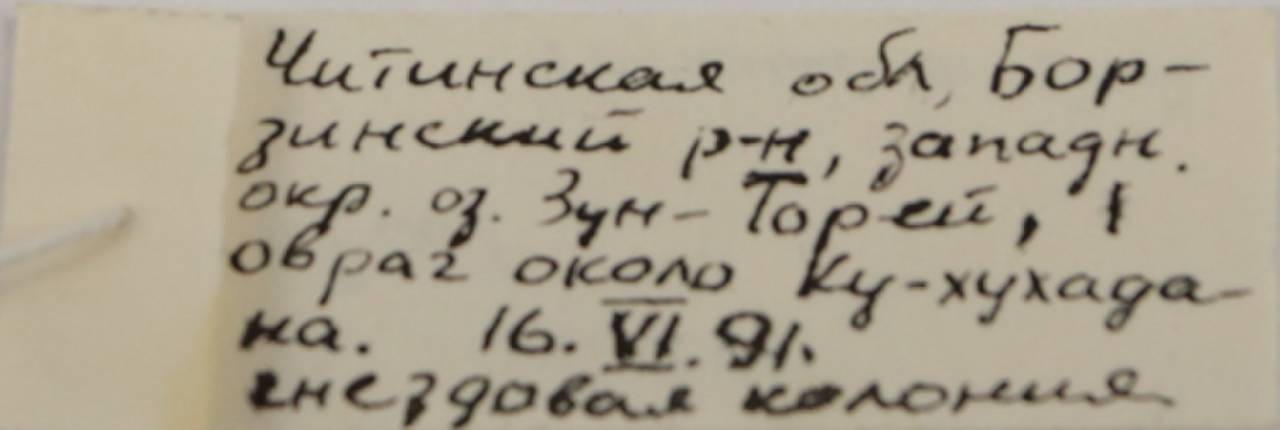 Читинская обл, Бор-
зинский р-н, западн.
окр. оз. Зун-Торей, 1
овраг около Ку-хухада-
на. 16.VI.91.
гнездовая колония